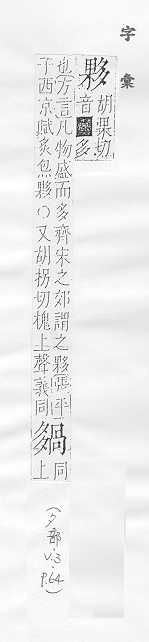 字彙
夥
胡果切
音禍多
也方言凡物盛而多齊宋之郊謂之夥張平
子西凉賦炙炰夥○又胡拐切槐上聲義同
同
上
(夕部 V.3 P.64)